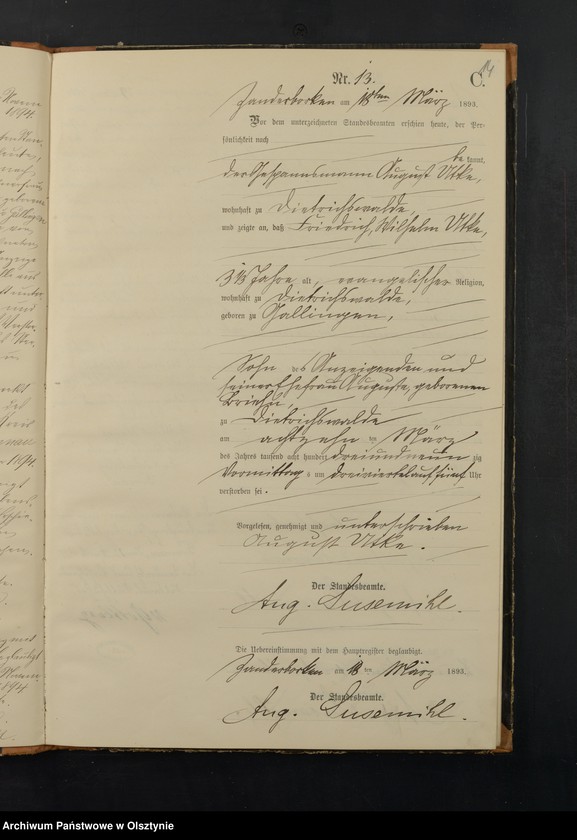 Nr. 13.
C.
14
Zanderborken am 18ten März 1893.
Vor dem unterzeichneten Standesbeamten erschien heute, der Per-
sönlichkeit nach
be kannt,
der Gespannsmann August Utke,
wohnhaft zu Dietrichswalde,
und zeigte an, daß Friedrich, Wilhelm Utke,
Jahre alt, evangelischer Religion,
wohnhaft zu Dietrichswalde,
geboren zu Gallingen,
Sohn des Anzeigenden und
seiner Ehefrau Auguste, geborenen
zu Dietrichswalde
am achtzehn ten März
des Jahres tausend acht hundert dreiundneun zig
Vormittag s um dreiviertelauf fünf Uhr
verstorben sei.
Vorgelesen, genehmigt und unterschrieben
August Utke.
Der Standesbeamte.
Aug. Susemihl.
Die Uebereinstimmung mit dem Hauptregister beglaubigt.
Zanderborken am 18 ten März 1893.
Der Standesbeamte.
Aug. Susemihl.
Archiwum Państwowe w Olsztynie